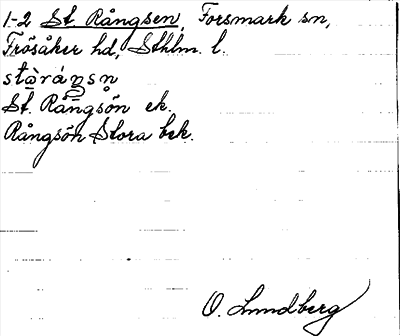 1-2 St. Rångsen, Forsmark sn,
Frösåker hd, Sthlm. l.
stàráŋsn
St. Rångsön ek.
Rångsön Stora bek.
O. Lundberg